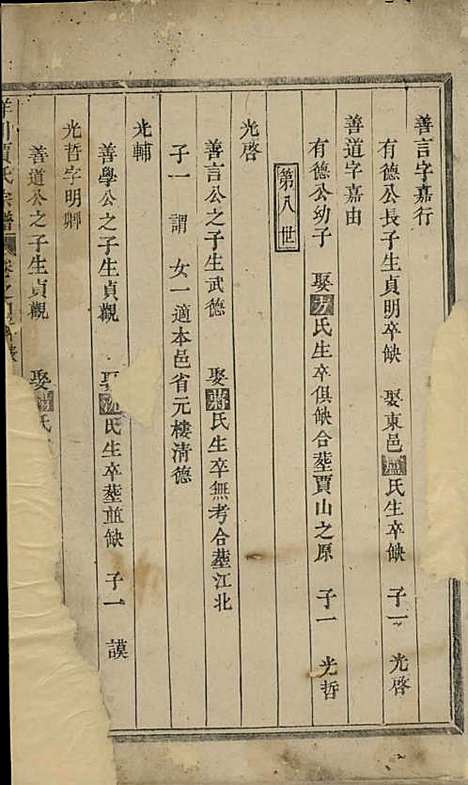 善言字嘉行
有德公長子生貞明卒缺 娶東邑盧氏生卒缺 子一 光啓
善道字嘉由
有德公幼子 娶方氏生卒俱缺合塟賈山之原 子一 光哲
第八世
光啓
善言公之子生武德 娶蔣氏生卒無考合塟江北
子一 謂 女一適本邑省元樓清德
光輔
善學公之子生貞觀 娶 氏生卒塟並缺 子一 謨
光哲字明卿
善道公之子生貞觀 娶 氏
賈氏宗譜 卷之